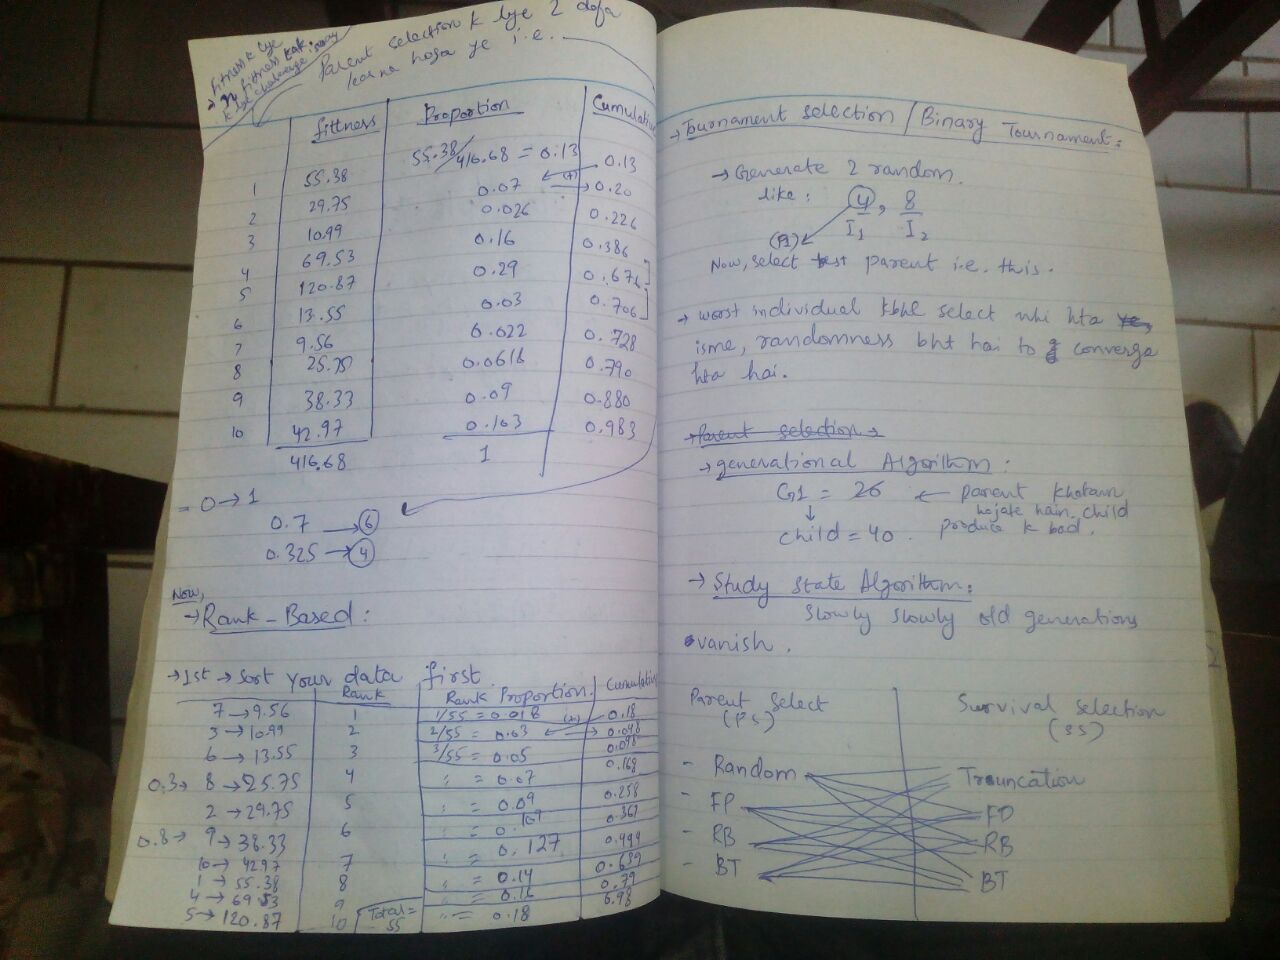 Fitness k lye
fitness
k
Parent selection k lye 2 dafa
karna hoga ye i.e.
fittness Proportion Cumulative
1 55.38 55.38/416.68 = 0.13 0.13
2 29.75 0.07 (+) 0.20
3 10.99 0.026 0.226
4 69.53 0.16 0.386
5 120.87 0.29 0.676
6 13.55 0.03 0.706
7 9.56 0.022 0.728
8 25.75 0.0618 0.790
9 38.33 0.09 0.880
10 42.97 0.103 0.983
416.68 1
= 0 → 1
0.7 → 6
0.325 → 4
Now,
→ Rank-Based:
→ 1st → Sort your data first
Rank Rank Proportion Cumulative
7 → 9.56 1 1/55 = 0.018 (+) 0.18
3 → 10.99 2 2/55 = 0.03 0.048
6 → 13.55 3 3/55 = 0.05 0.098
0.3 → 8 → 25.75 4 " = 0.07 0.168
2 → 29.75 5 " = 0.09 0.258
0.8 → 9 → 38.33 6 " = 0.367
10 → 42.97 7 " = 0.127
1 → 55.38 8 " = 0.14
4 → 69.53 9 " = 0.16 0.79
5 → 120.87 10 Total = 55 " = 0.18
→ Tournament selection / Binary Tournament:
→ Generate 2 random.
like: 4, 8
(P1) I1 I2
Now, select best parent i.e. this.
→ worst individual kbhi select nhi hta
isme, randomness bht hai to converge
hta hai.
→ Parent selection →
→ generational Algorithm:
G1 = 26 ← parent khatam
↓ hojate hain child
child = 40. produce k bad.
→ Study state Algorithm:
Slowly slowly old generations
vanish.
Parent Select Survival selection
(PS) (SS)
- Random Trouncation
- FP FP
- RB RB
- BT BT